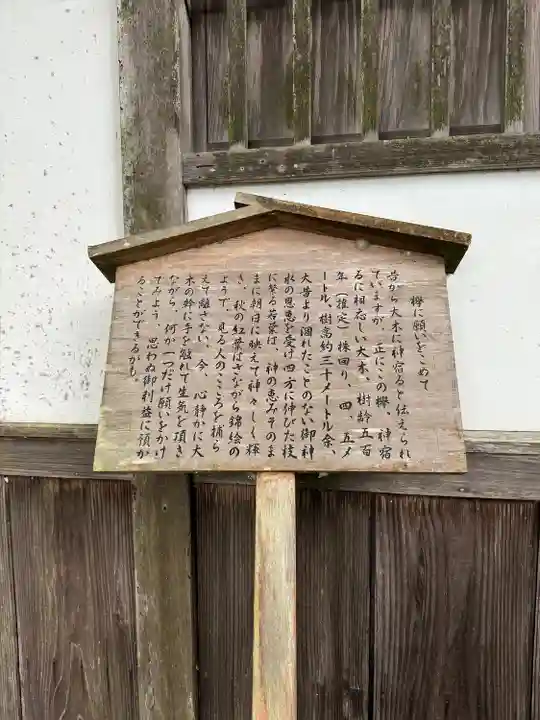 欅に願いをこめて
昔から大木に神宿ると伝えられ
ていますが、正にこの欅、神宿
るに相応しい大木、樹齢五百
年（推定）株回り、四、五メ
ートル、樹高約三十メートル余、
大昔より涸れたことのない御神
水の恩恵を受け四方に伸びた枝
に繁る若葉は、神の恵みそのま
まに朝日に映えて神々しく輝
き、秋の紅葉はさながら錦絵の
ようで、見る人のこころを捕ら
えて離さない。今、心静かに大
木の幹に手を触れて生気を頂き
ながら、何か一つだけ願いをかけ
てみよう、思わぬ御利益に預か
ることができるかも。